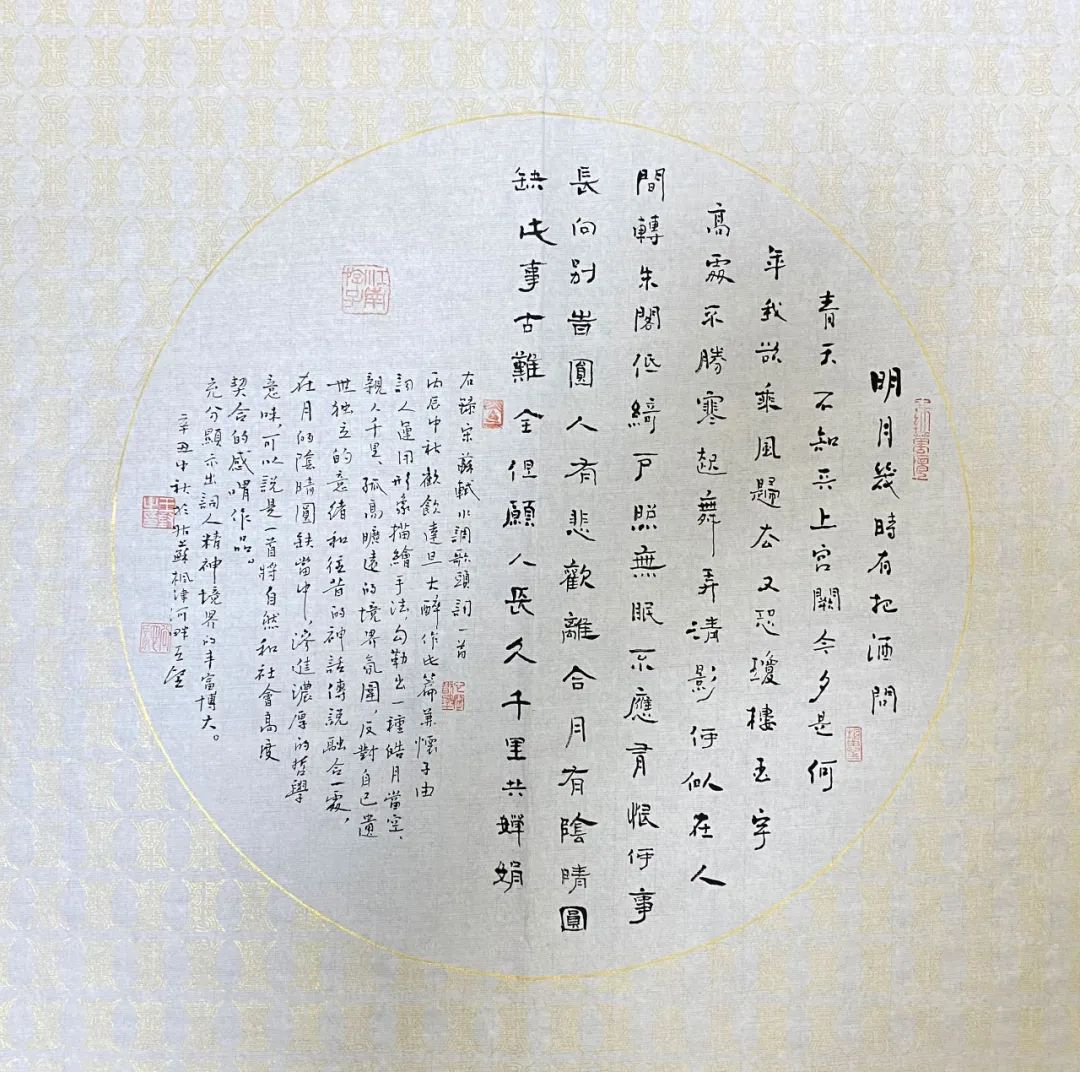 明月幾時有把酒問
青天不知天上宮闕今夕是何
年我欲乘風歸去又恐瓊樓玉宇
高處不勝寒起舞弄清影何似在人
間轉朱閣低綺戶照無眠不應有恨何事
長向別時圓人有悲歡離合月有陰晴圓
缺此事古難全但願人長久千里共嬋娟
右録宋蘇軾水調歌頭詞一首
丙辰中秋歡飲達旦大醉作此篇兼懷子由
詞人運用形象描繪手法,勾勒出一種皓月當空、
親人千里、孤高曠遠的境界氛圍,反對自己遺
世独立的意緒和往昔的神話傳説融合一處,
在月的陰晴圓缺當中,滲進濃厚的哲學
意味,可以説是一首將自然和社會高度
契合的感喟作品。
充分顯示出詞人精神境界的丰富博大。
辛丑中秋於姑蘇楓津河畔
江南